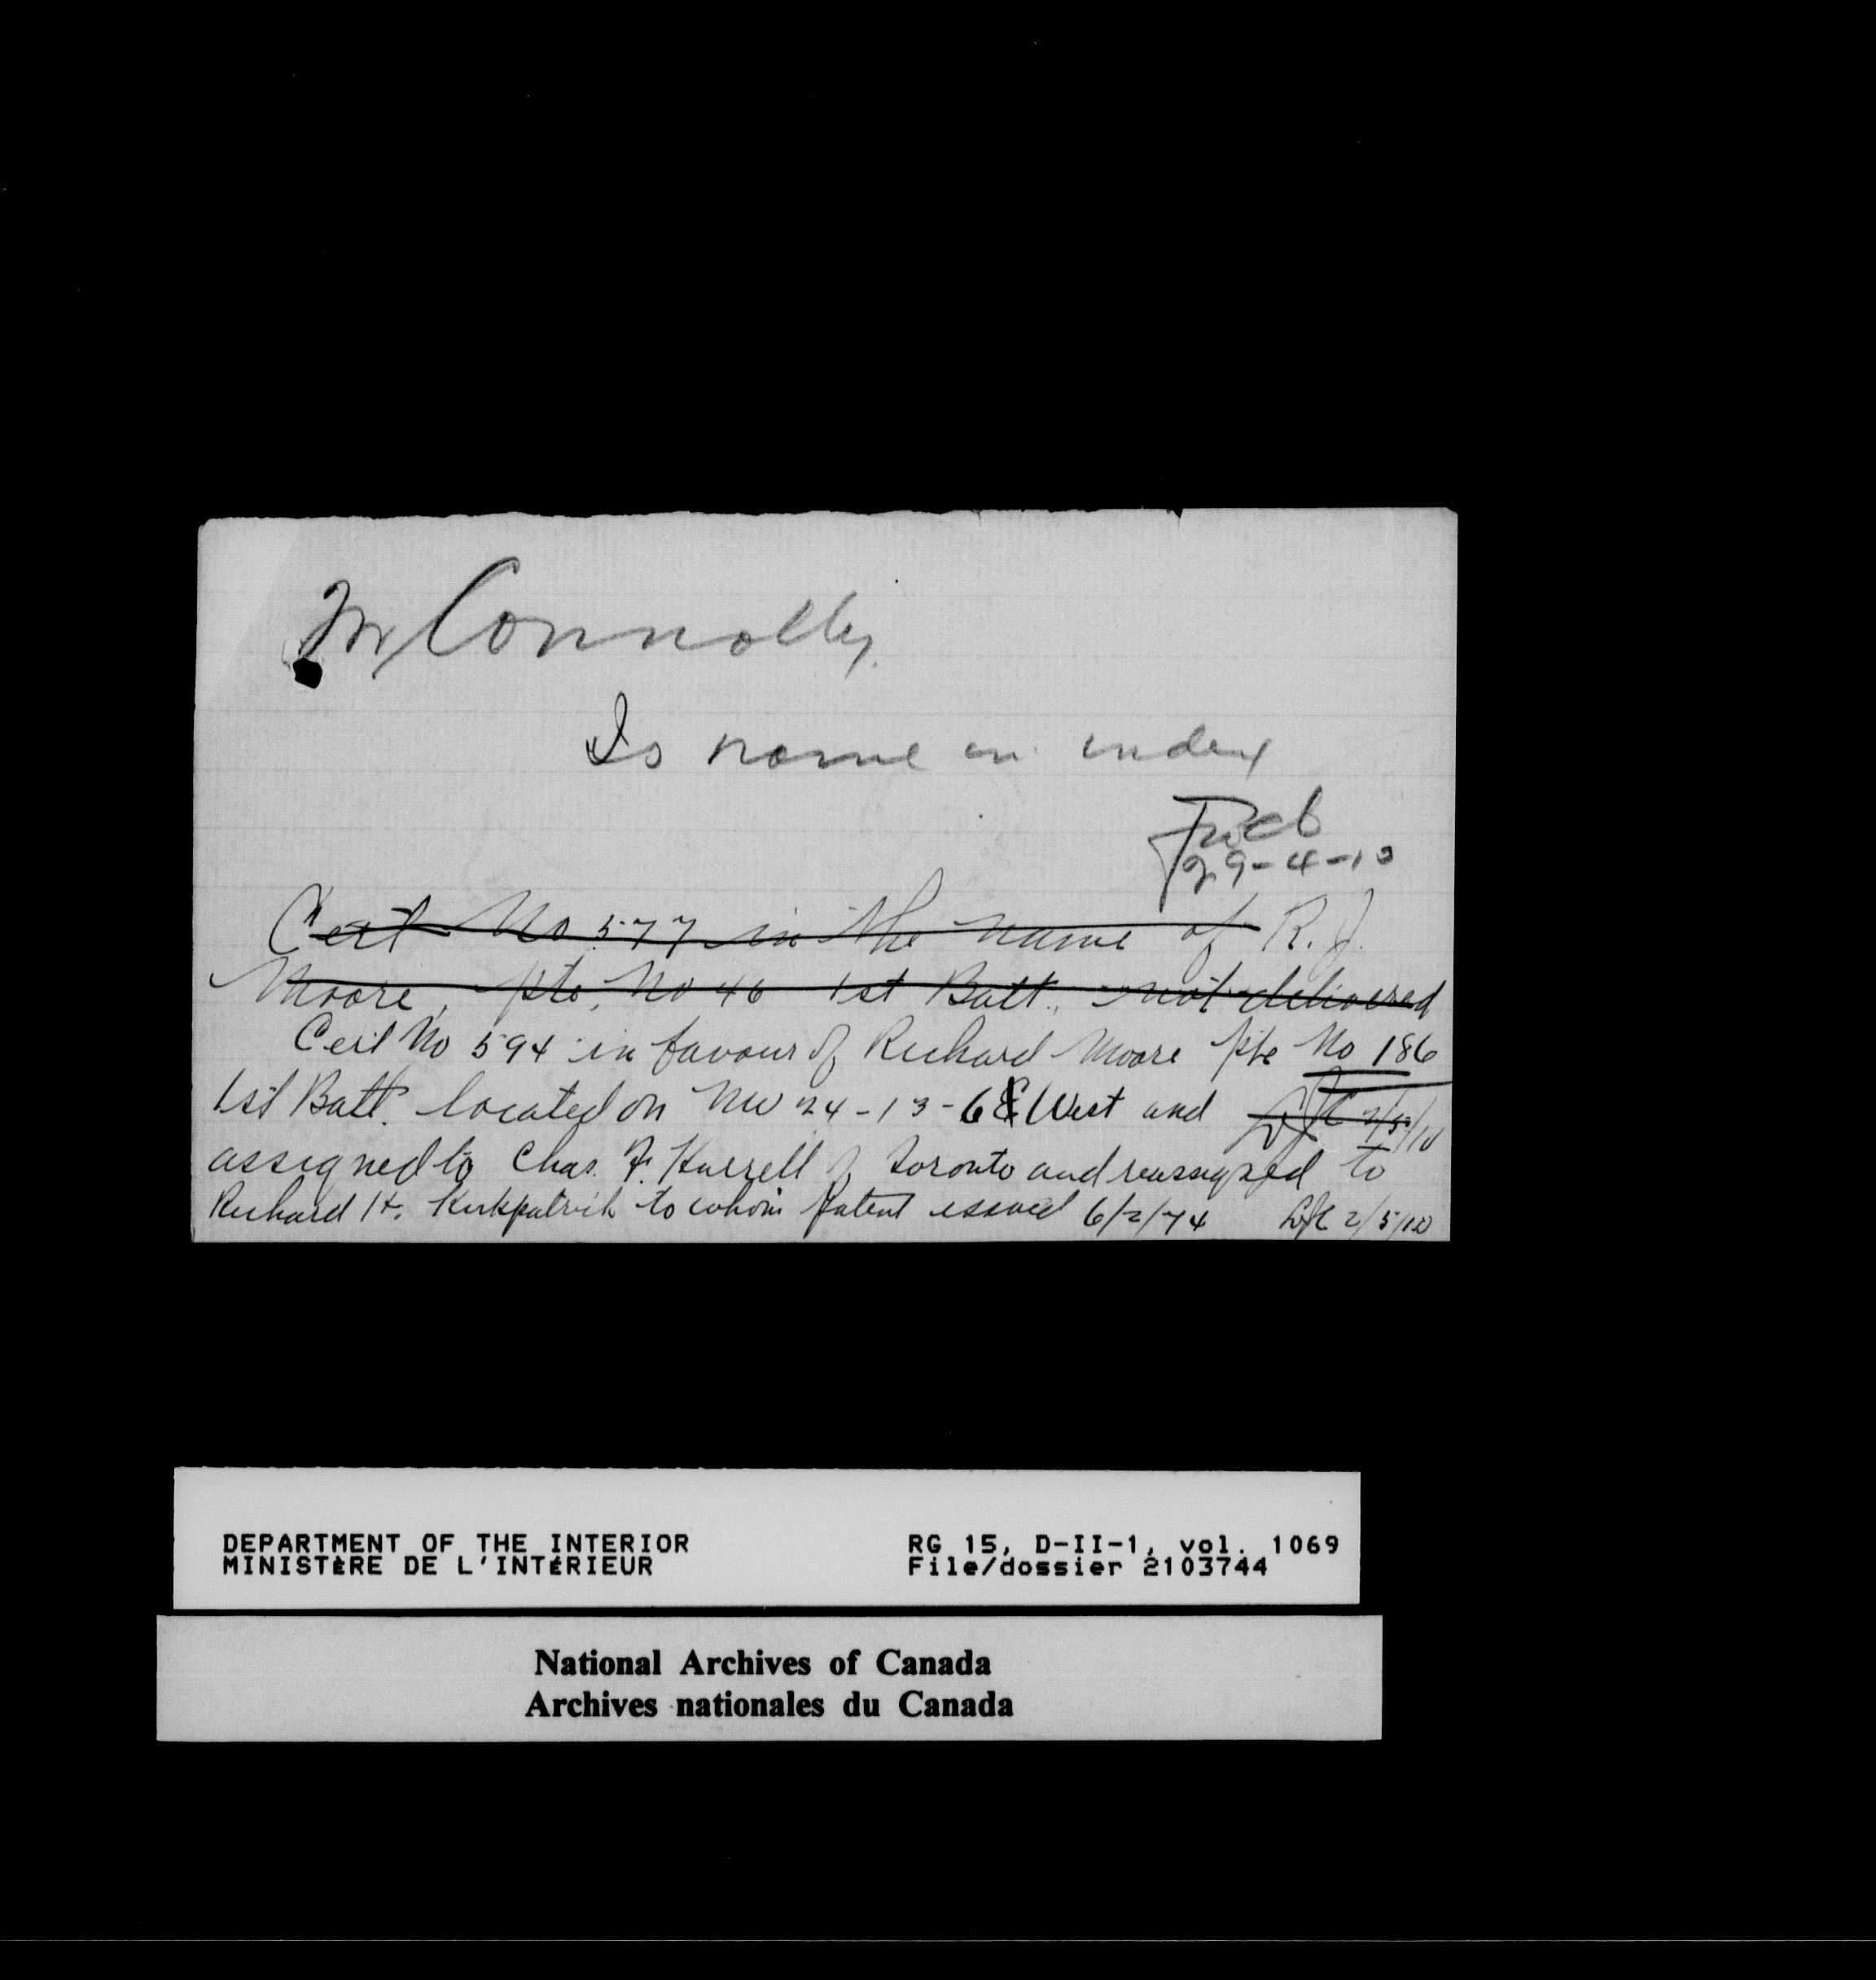 Mr Connolly.
Is name in index
29-4-10
Cert No 577 in the name of R. J.
Moore, pte, No 46 1st Batt., not delivered
Cert No 594 in favour of Richard Moore pte No 186
1st Batt. located on NW 24-13-6 E West and 2/5/10
assigned to Chas. F. of Toronto and reassigned to
Richard H. Kirkpatrick to whom Patent issued 6/2/74 2/5/10
DEPARTMENT OF THE INTERIOR RG 15, D-II-1, vol. 1069
MINISTÈRE DE L'INTÉRIEUR File/dossier 2103744
National Archives of Canada
Archives nationales du Canada